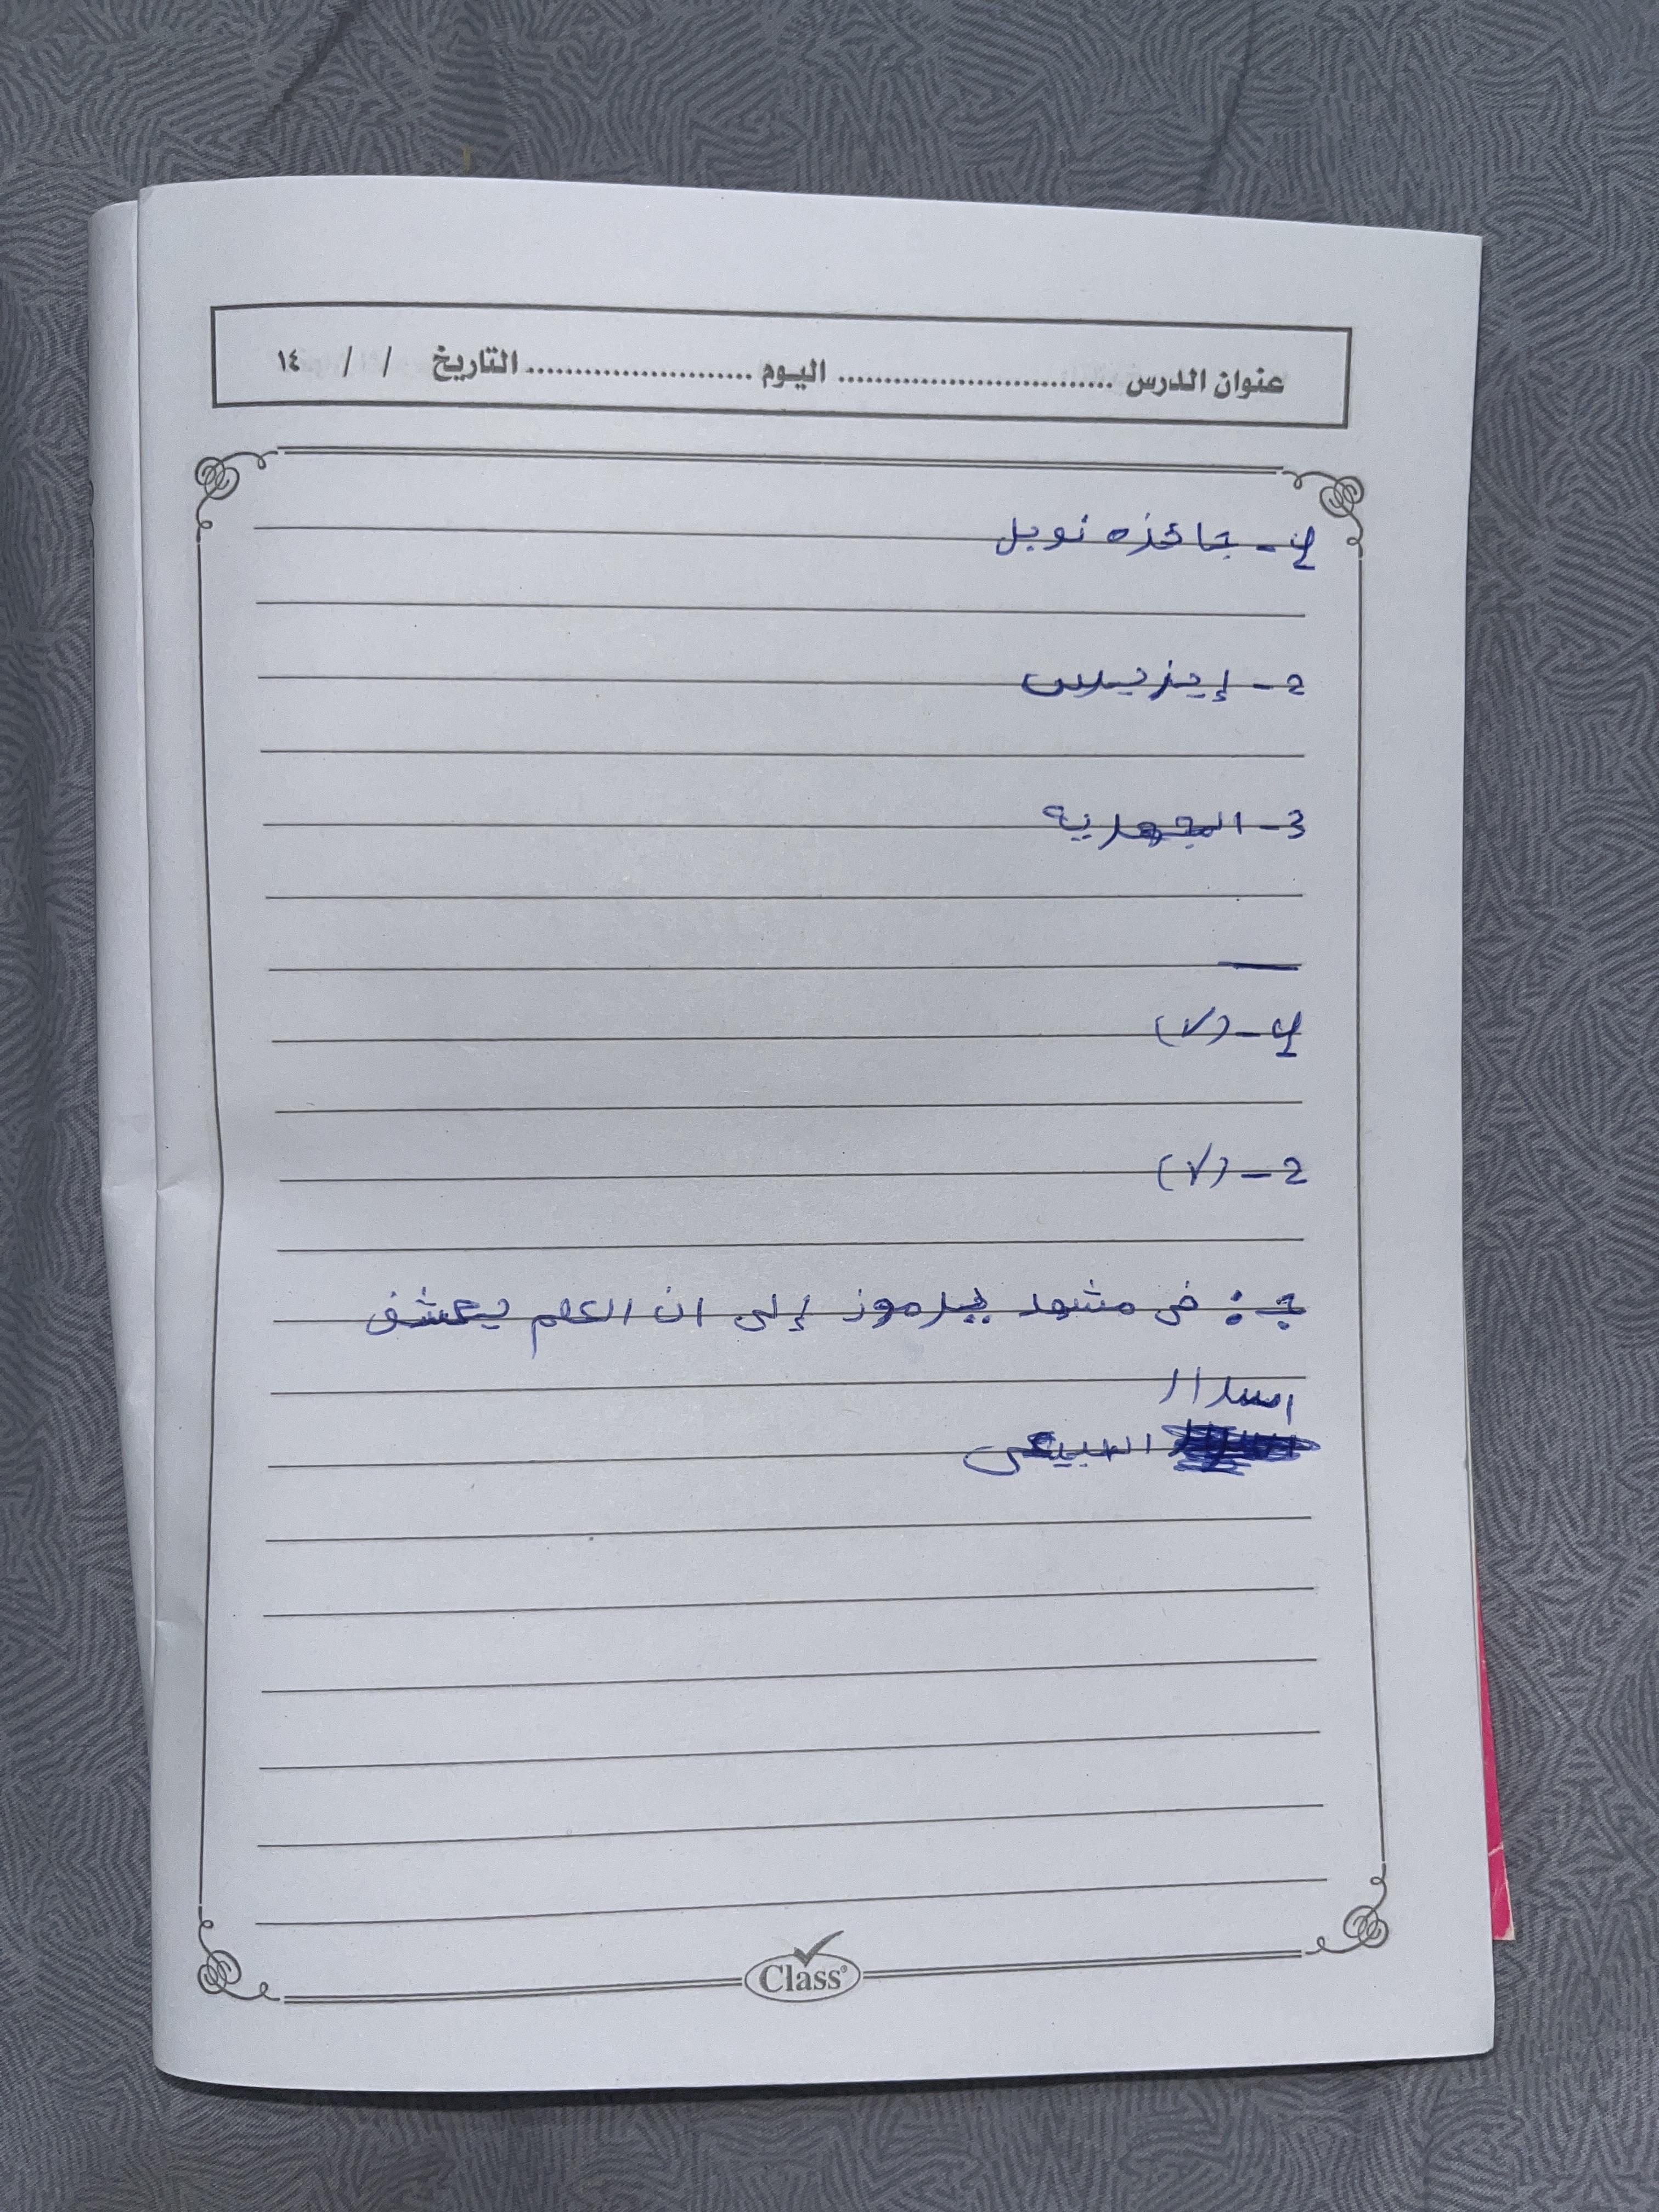 عنوان الدرس ............................ اليوم ....................... التاريخ / / ١٤
1- جائزه نوبل
2- إيزيس
3- المجهرية
1- (✓)
2- (✓)
ج: في مشهد يرموز إلى ان العلم يكشف
اسرار
الطبيعي
Class